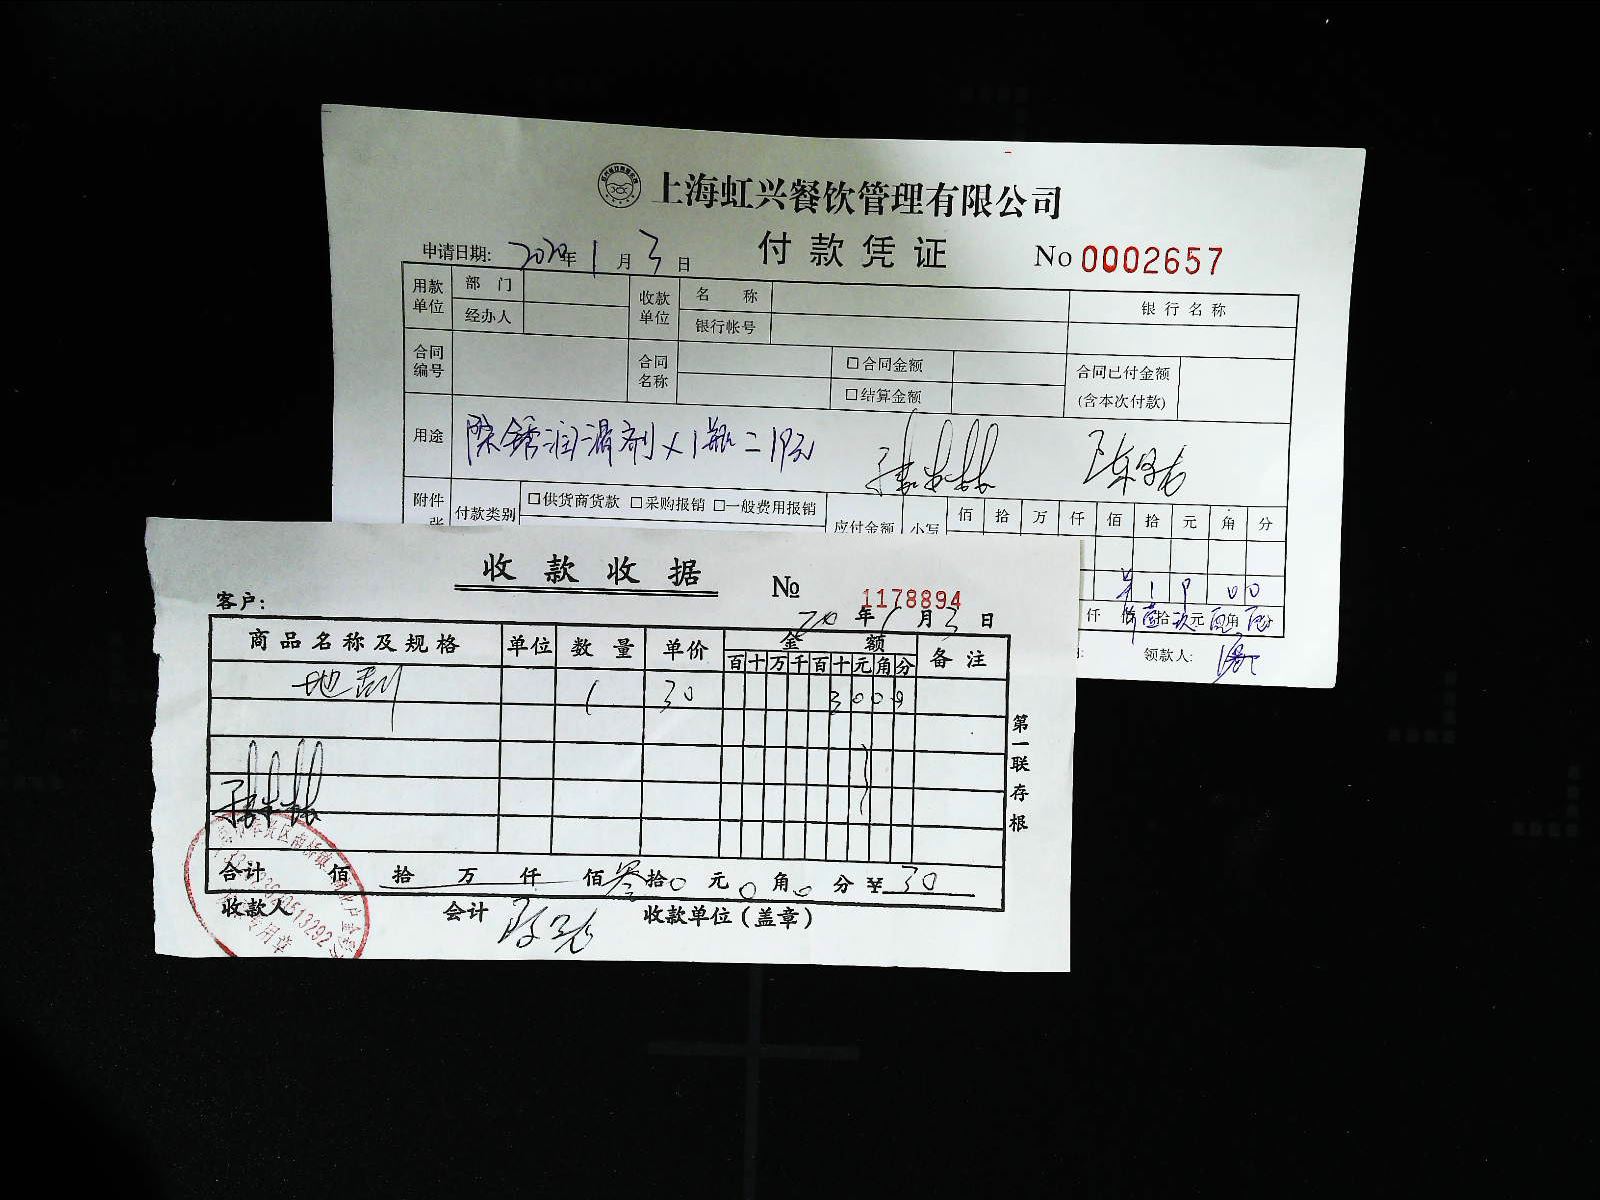 上海虹兴餐饮管理有限公司
付款凭证
No 0002657
申请日期: 2020年1月3日
用款单位 部门 收款单位 名称 银行名称
经办人 银行帐号
合同编号 合同名称 □合同金额 合同已付金额
□结算金额 (含本次付款)
用途 除锈润滑剂×1瓶=19元
附件 张 付款类别 □供货商货款 □采购报销 □一般费用报销 应付金额 小写 佰 拾 万 仟 佰 拾 元 角 分
1 9 0 0
仟 佰 壹拾 玖元 角
领款人:
收款收据
№ 1178894
客户:
20年1月3日
商品名称及规格 单位 数量 单价 金额 备注
百 十 万 千 百 十 元 角 分
地刮 1 30 3 0 0 0
第一联存根
合计 佰 拾 万 仟 佰 叁拾 0 元 0 角 0 分 ¥ 30
收款人 会计 收款单位(盖章)